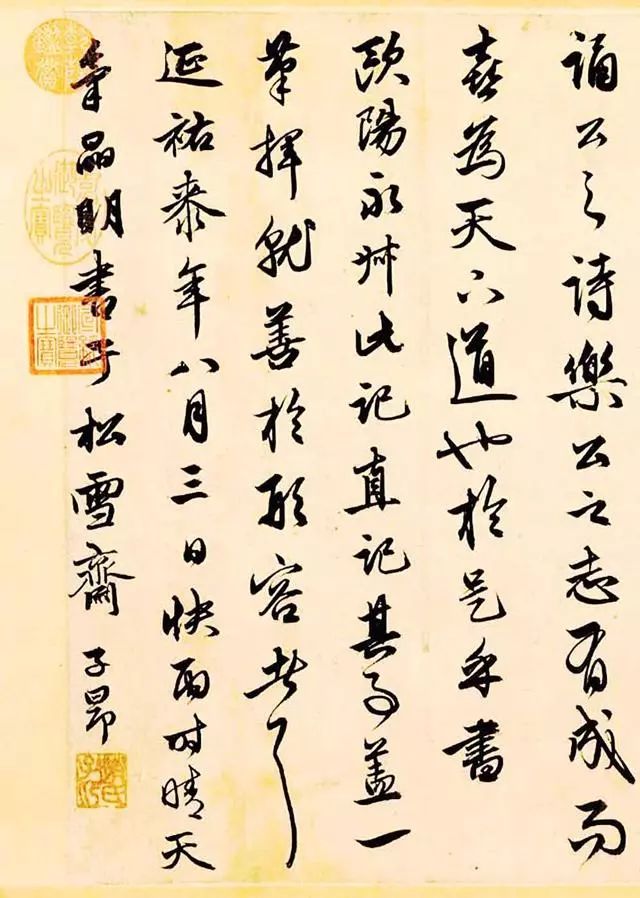 誦公之詩樂公之志有成而
喜為天下道也於是乎書
歐陽永叔此記直記其事蓋一
筆揮就善於形容者耳
延祐桼年八月三日快雨时晴天
氣晶明書于松雪齋 子昂
趙氏子昂